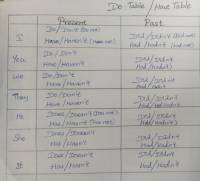 Do Table / Have Table
Present Past
I
Do / Don't (Do not) Did / Didn't (Did not)
Have / Haven't (Have not) Had / Hadn't (Had not)
You
Do / Don't Did / Didn't
Have / Haven't Had / Hadn't
We
Do / Don't Did / Didn't
Have / Haven't Had / Hadn't
They
Do / Don't Did / Didn't
Have / Haven't Had / Hadn't
He
Does / Doesn't Did / Didn't
Has / Hasn't Had / Hadn't
She
Does / Doesn't Did / Didn't
Has / Hasn't Had / Hadn't
It
Does / Doesn't Did / Didn't
Has / Hasn't Had / Hadn't